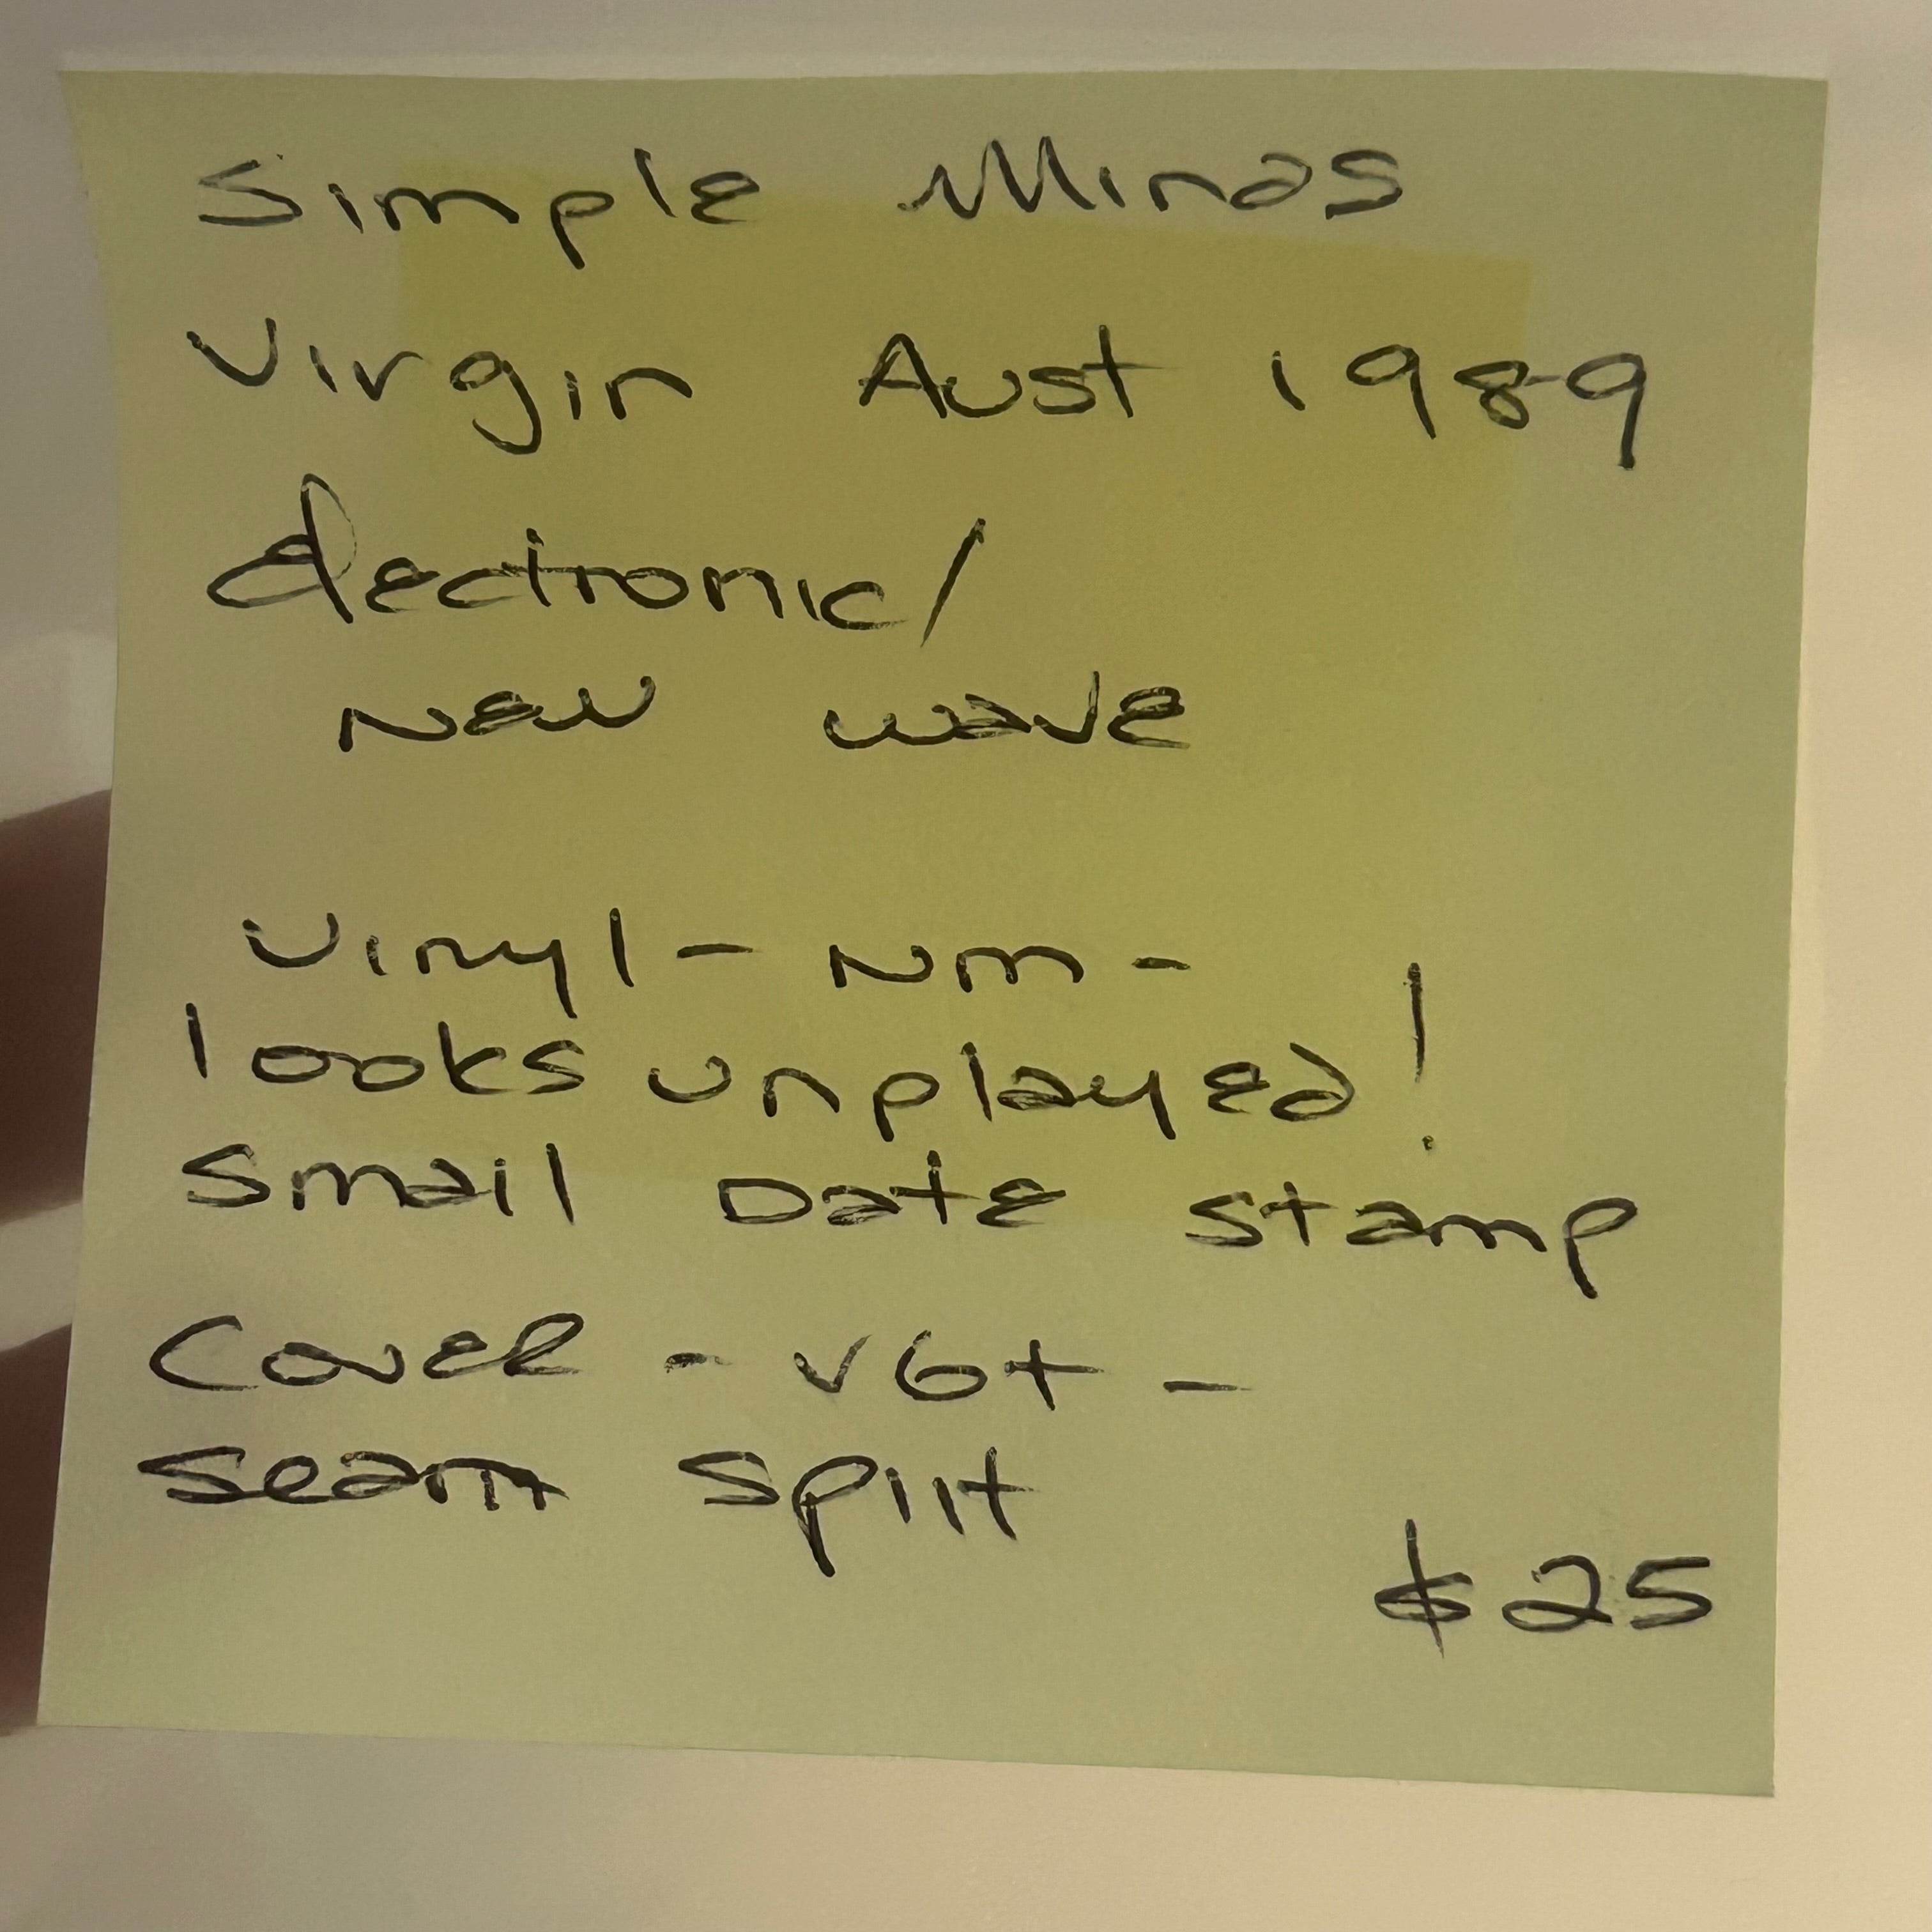 Simple Minds
Virgin Aust 1989
Electronic/
New wave
Vinyl - NM -
looks unplayed!
Small Date stamp
Cover - VG+ -
seam split
$25